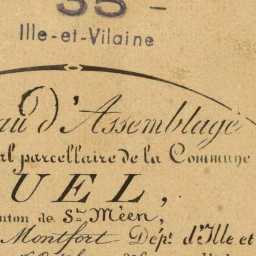 35 -
Ille-et-Vilaine
d'Assemblage
parcellaire de la Commune
UEL,
de St. Méen,
Montfort Dépt. d'Ille et